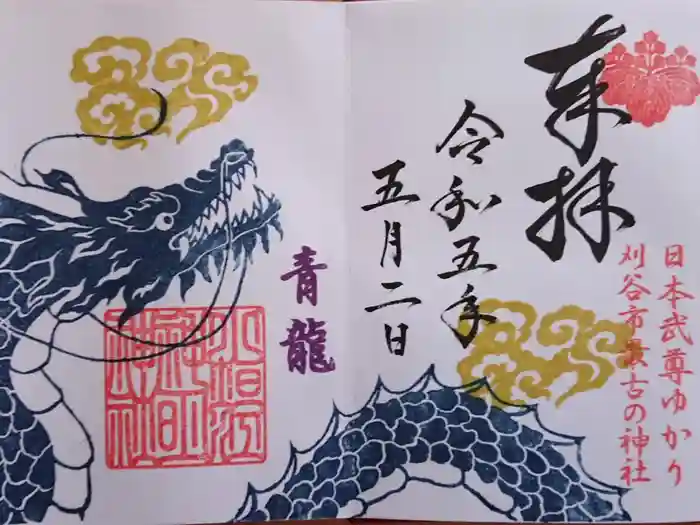 奉拝
令和五年
五月二日
日本武尊ゆかり
刈谷市最古の神社
青龍